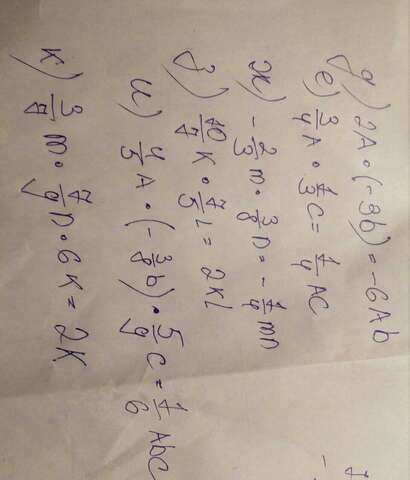 д) 2A · (-3b) = -6Ab
е) 3/4 A · 1/3 C = 1/4 AC
ж) -2/3 m · 3/8 n = -1/4 mn
з) 10/7 K · 7/5 L = 2KL
и) 4/5 A · (-3/8 b) · 5/9 C = 1/6 AbC
к) 3/7 m · 7/9 n · 6K = 2K